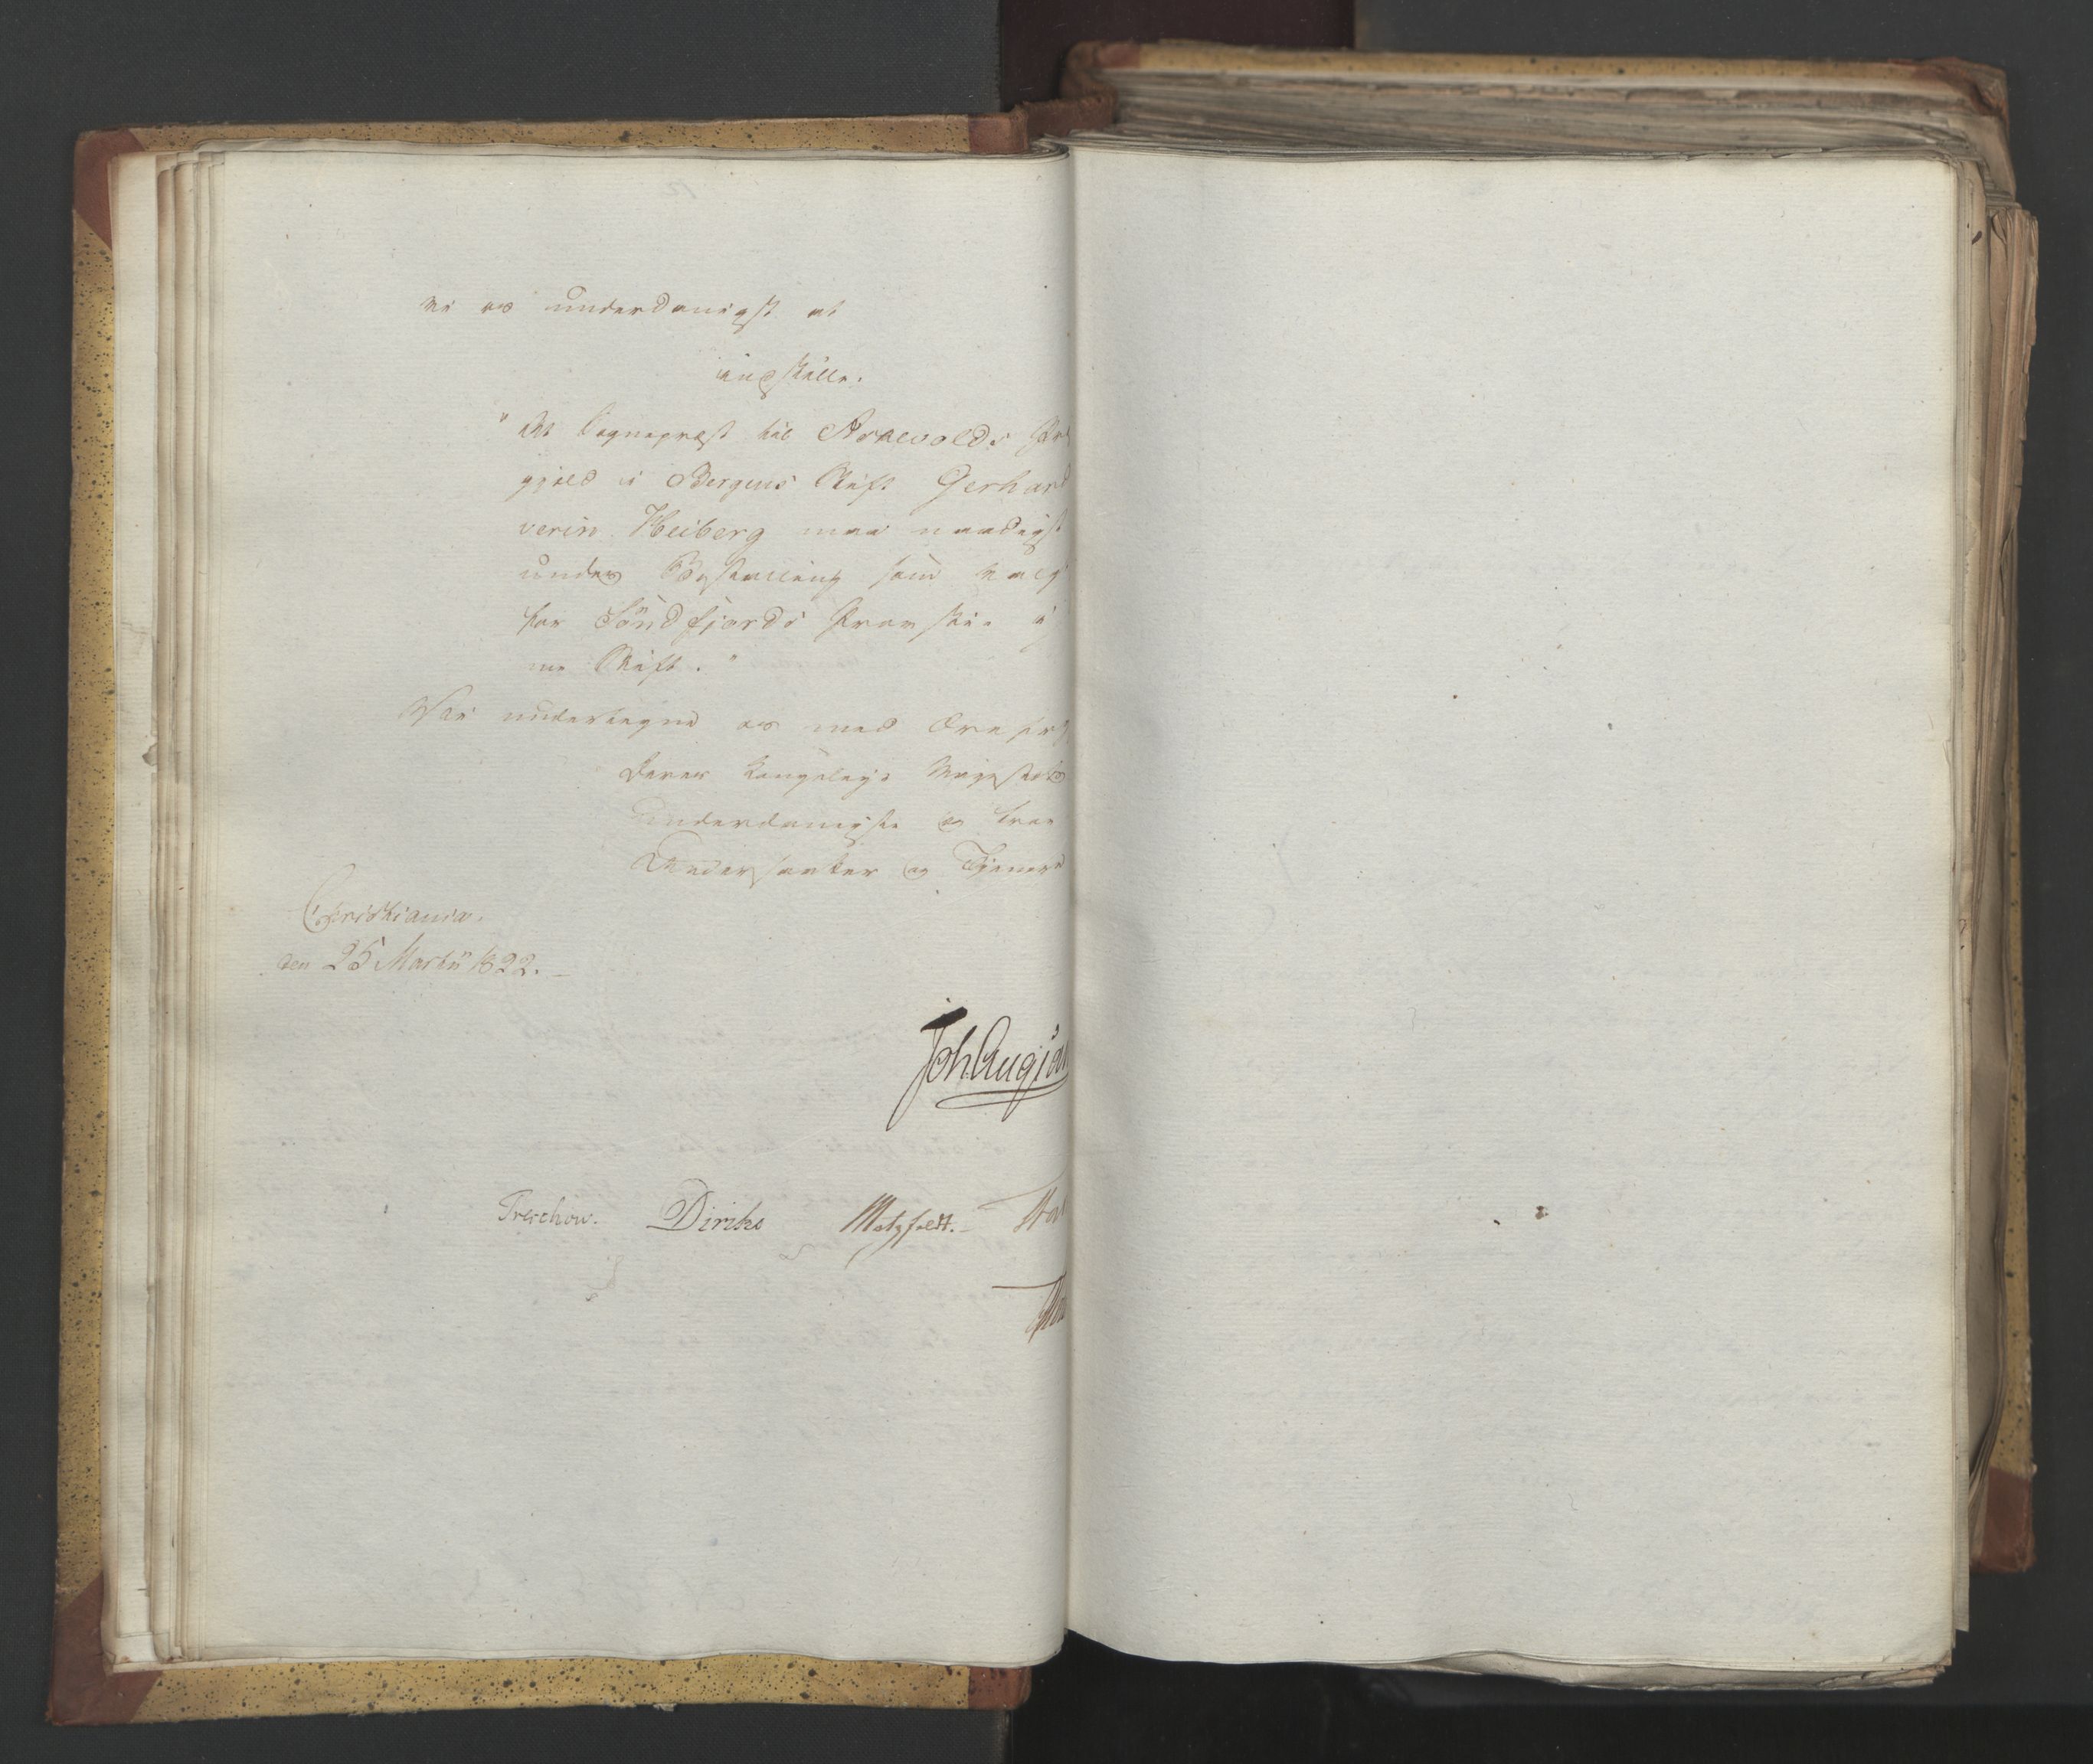 vi os underdanigst at
indstille.
"At Sognepræst til Askevolds Præ
gjeld i Bergens Stift Gerhard
verin Heiberg maa naadigst
under Bestalling som
for Söndfjords Provstie i
me Stift."
Vi undertegne os med Ærefry
Deres Kongelige Majestæts
underdanigste og troe
Undersaatter og Tjenere
Christiania.
den 25 Martii 1822.
Joh. Aug. San
Treschow. Diriks Motzfeldt.